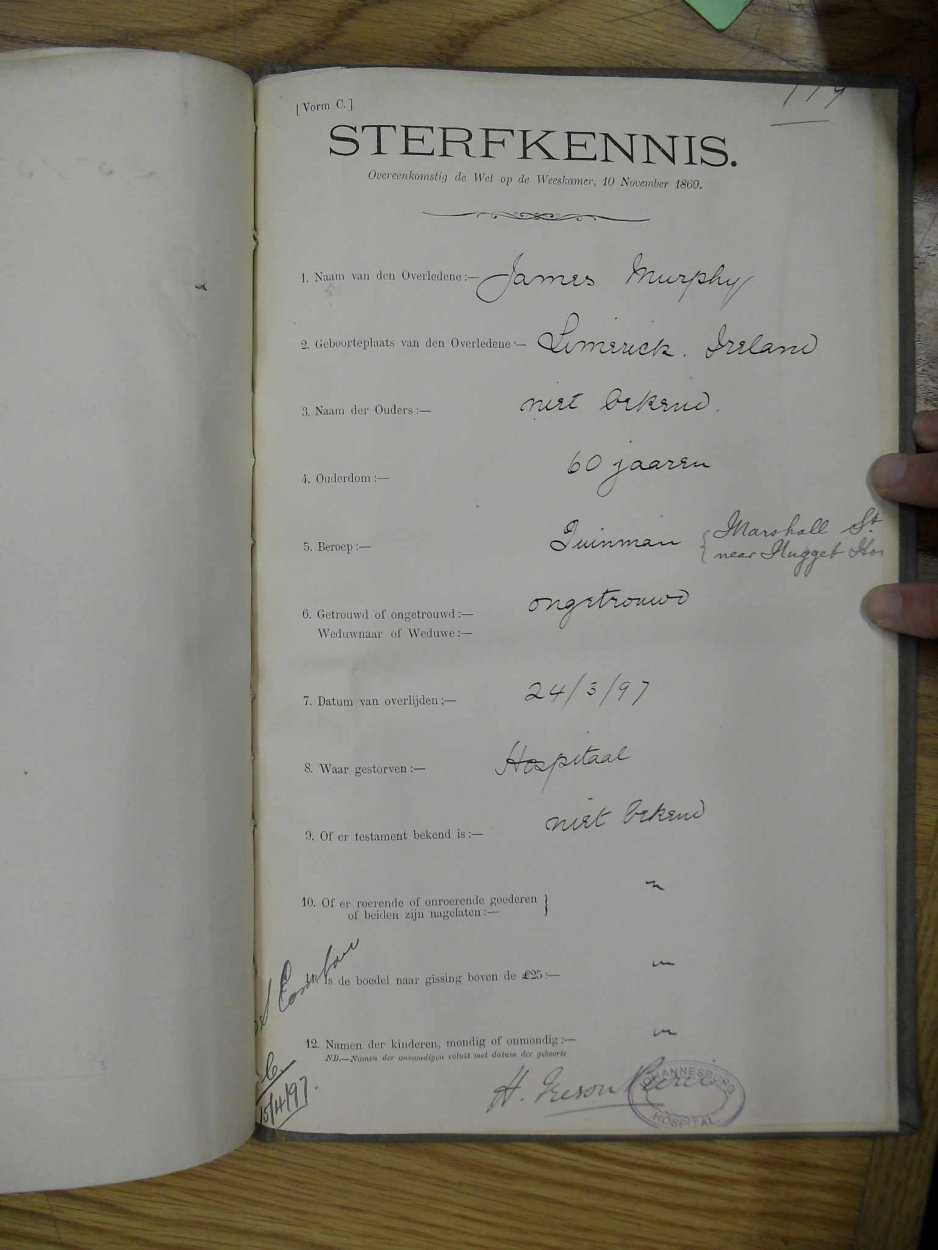 [Vorm C.]
119
STERFKENNIS.
Overeenkomstig de Wet op de Weeskamer, 10 November 1869.
1. Naam van den Overledene:— James Murphy
2. Geboorteplaats van den Overledene:— Limerick. Ireland
3. Naam der Ouders:— niet bekend.
4. Ouderdom:— 60 jaaren
5. Beroep:— Tuinman { Marshall St.
near Nugget
6. Getrouwd of ongetrouwd:— ongetrouwd
Weduwnaar of Weduwe:—
7. Datum van overlijden:— 24/3/97
8. Waar gestorven:— Hospitaal
9. Of er testament bekend is:— niet bekend
10. Of er roerende of onroerende goederen }
of beiden zijn nagelaten:— "
Is de boedel naar gissing boven de £25:— "
12. Namen der kinderen, mondig of onmondig:— "
NB.—Namen der onmondigen voluit met datum der geboorte
15/4/97.
H.
JOHANNESBURG
HOSPITAL.